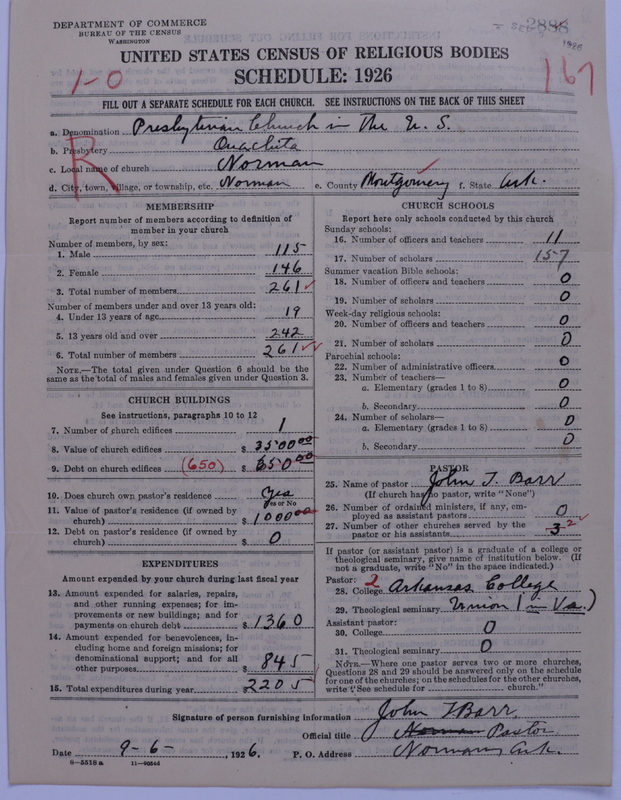 DEPARTMENT OF COMMERCE
BUREAU OF THE CENSUS
WASHINGTON
2888
1926
UNITED STATES CENSUS OF RELIGIOUS BODIES
SCHEDULE: 1926
1-0
167
FILL OUT A SEPARATE SCHEDULE FOR EACH CHURCH. SEE INSTRUCTIONS ON THE BACK OF THIS SHEET
R
a. Denomination Presbyterian Church in the U. S.
b. Presbytery Ouachita
c. Local name of church Norman
d. City, town, village, or township, etc. Norman e. County Montgomery f. State Ark.
MEMBERSHIP
Report number of members according to definition of
member in your church
Number of members, by sex:
1. Male 115
2. Female 146
3. Total number of members 261
Number of members under and over 13 years old:
4. Under 13 years of age 19
5. 13 years old and over 242
6. Total number of members 261
NOTE.—The total given under Question 6 should be
same as the total of males and females given under Question 3.
CHURCH BUILDINGS
See instructions, paragraphs 10 to 12
7. Number of church edifices 1
8. Value of church edifices $ 35000 00
9. Debt on church edifices (650) $ 650 00
10. Does church own pastor's residence Yes
Yes or No
11. Value of pastor's residence (if owned by
church) $ 1000 00
12. Debt on pastor's residence (if owned by
church) $ 0
EXPENDITURES
Amount expended by your church during last fiscal year
13. Amount expended for salaries, repairs,
and other running expenses; for im-
provements or new buildings; and for
payments on church debt $ 1360
14. Amount expended for benevolences, in-
cluding home and foreign missions; for
denominational support; and for all
other purposes $ 845
15. Total expenditures during year $ 2205
CHURCH SCHOOLS
Report here only schools conducted by this church
Sunday schools:
16. Number of officers and teachers 11
17. Number of scholars 157
Summer vacation Bible schools:
18. Number of officers and teachers 0
19. Number of scholars 0
Week-day religious schools:
20. Number of officers and teachers 0
21. Number of scholars 0
Parochial schools:
22. Number of administrative officers 0
23. Number of teachers—
a. Elementary (grades 1 to 8) 0
b. Secondary 0
24. Number of scholars—
a. Elementary (grades 1 to 8) 0
b. Secondary 0
PASTOR
25. Name of pastor John T. Barr
(If church has no pastor, write "None")
26. Number of ordained ministers, if any, em-
ployed as assistant pastors 0
27. Number of other churches served by the
pastor or his assistants 3 2
If pastor (or assistant pastor) is a graduate of a college or
theological seminary, give name of institution below. (If
not a graduate, write "No" in the space indicated.)
Pastor: 2
28. College Arkansas College
29. Theological seminary Union (in Va.)
Assistant pastor:
30. College 0
31. Theological seminary 0
NOTE.—Where one pastor serves two or more churches,
Questions 28 and 29 should be answered only on the schedule
for one of the churches; on the schedules for the other churches,
write "See schedule for church."
Signature of person furnishing information John T Barr
Official title Norman Pastor
Date 9-6- 1926. P. O. Address Norman, Ark.
8-5518 a